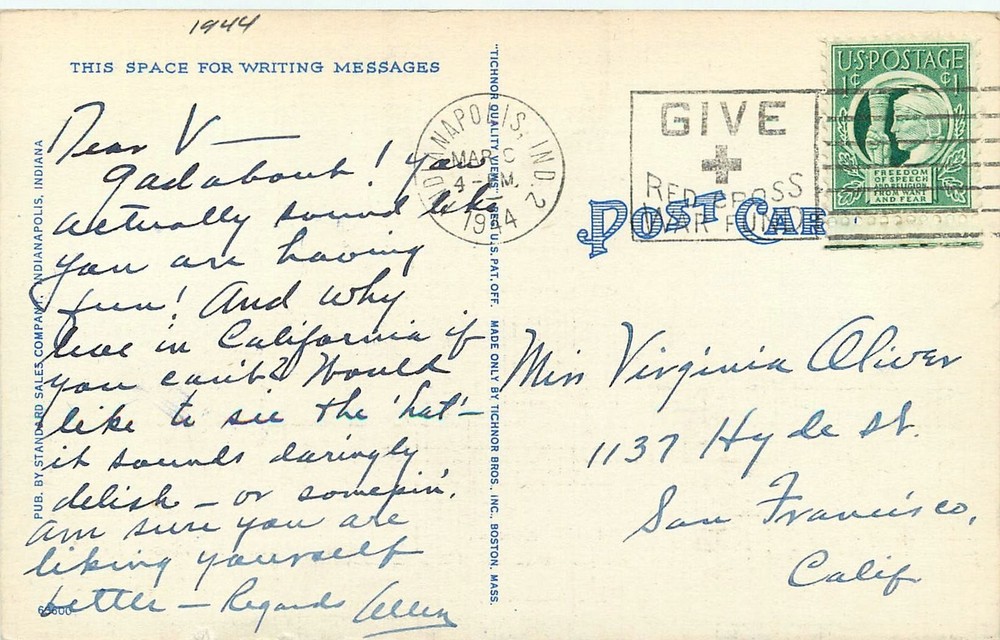 1944
THIS SPACE FOR WRITING MESSAGES
Dear V—
Gadabout! You
actually sound like
you are having
fun! And why
live in California if
you can't? Would
like to see the 'hat'—
it sounds daringly
delish — or somepin'.
Am sure you are
liking yourself
better — Regards Allen
63600
PUB. BY STANDARD SALES COMPANY, INDIANAPOLIS, INDIANA
"TICHNOR QUALITY VIEWS," REG. U. S. PAT. OFF. MADE ONLY BY TICHNOR BROS., INC., BOSTON, MASS.
INDIANAPOLIS, IND. 2
MAR
4-PM
1944
GIVE
RED CROSS
WAR FUND
U.S. POSTAGE
1¢ ¢1
FREEDOM
OF SPEECH
AND RELIGION
FROM WANT
AND FEAR
POST CAR
Miss Virginia Oliver
1137 Hyde St.
San Francisco,
Calif.